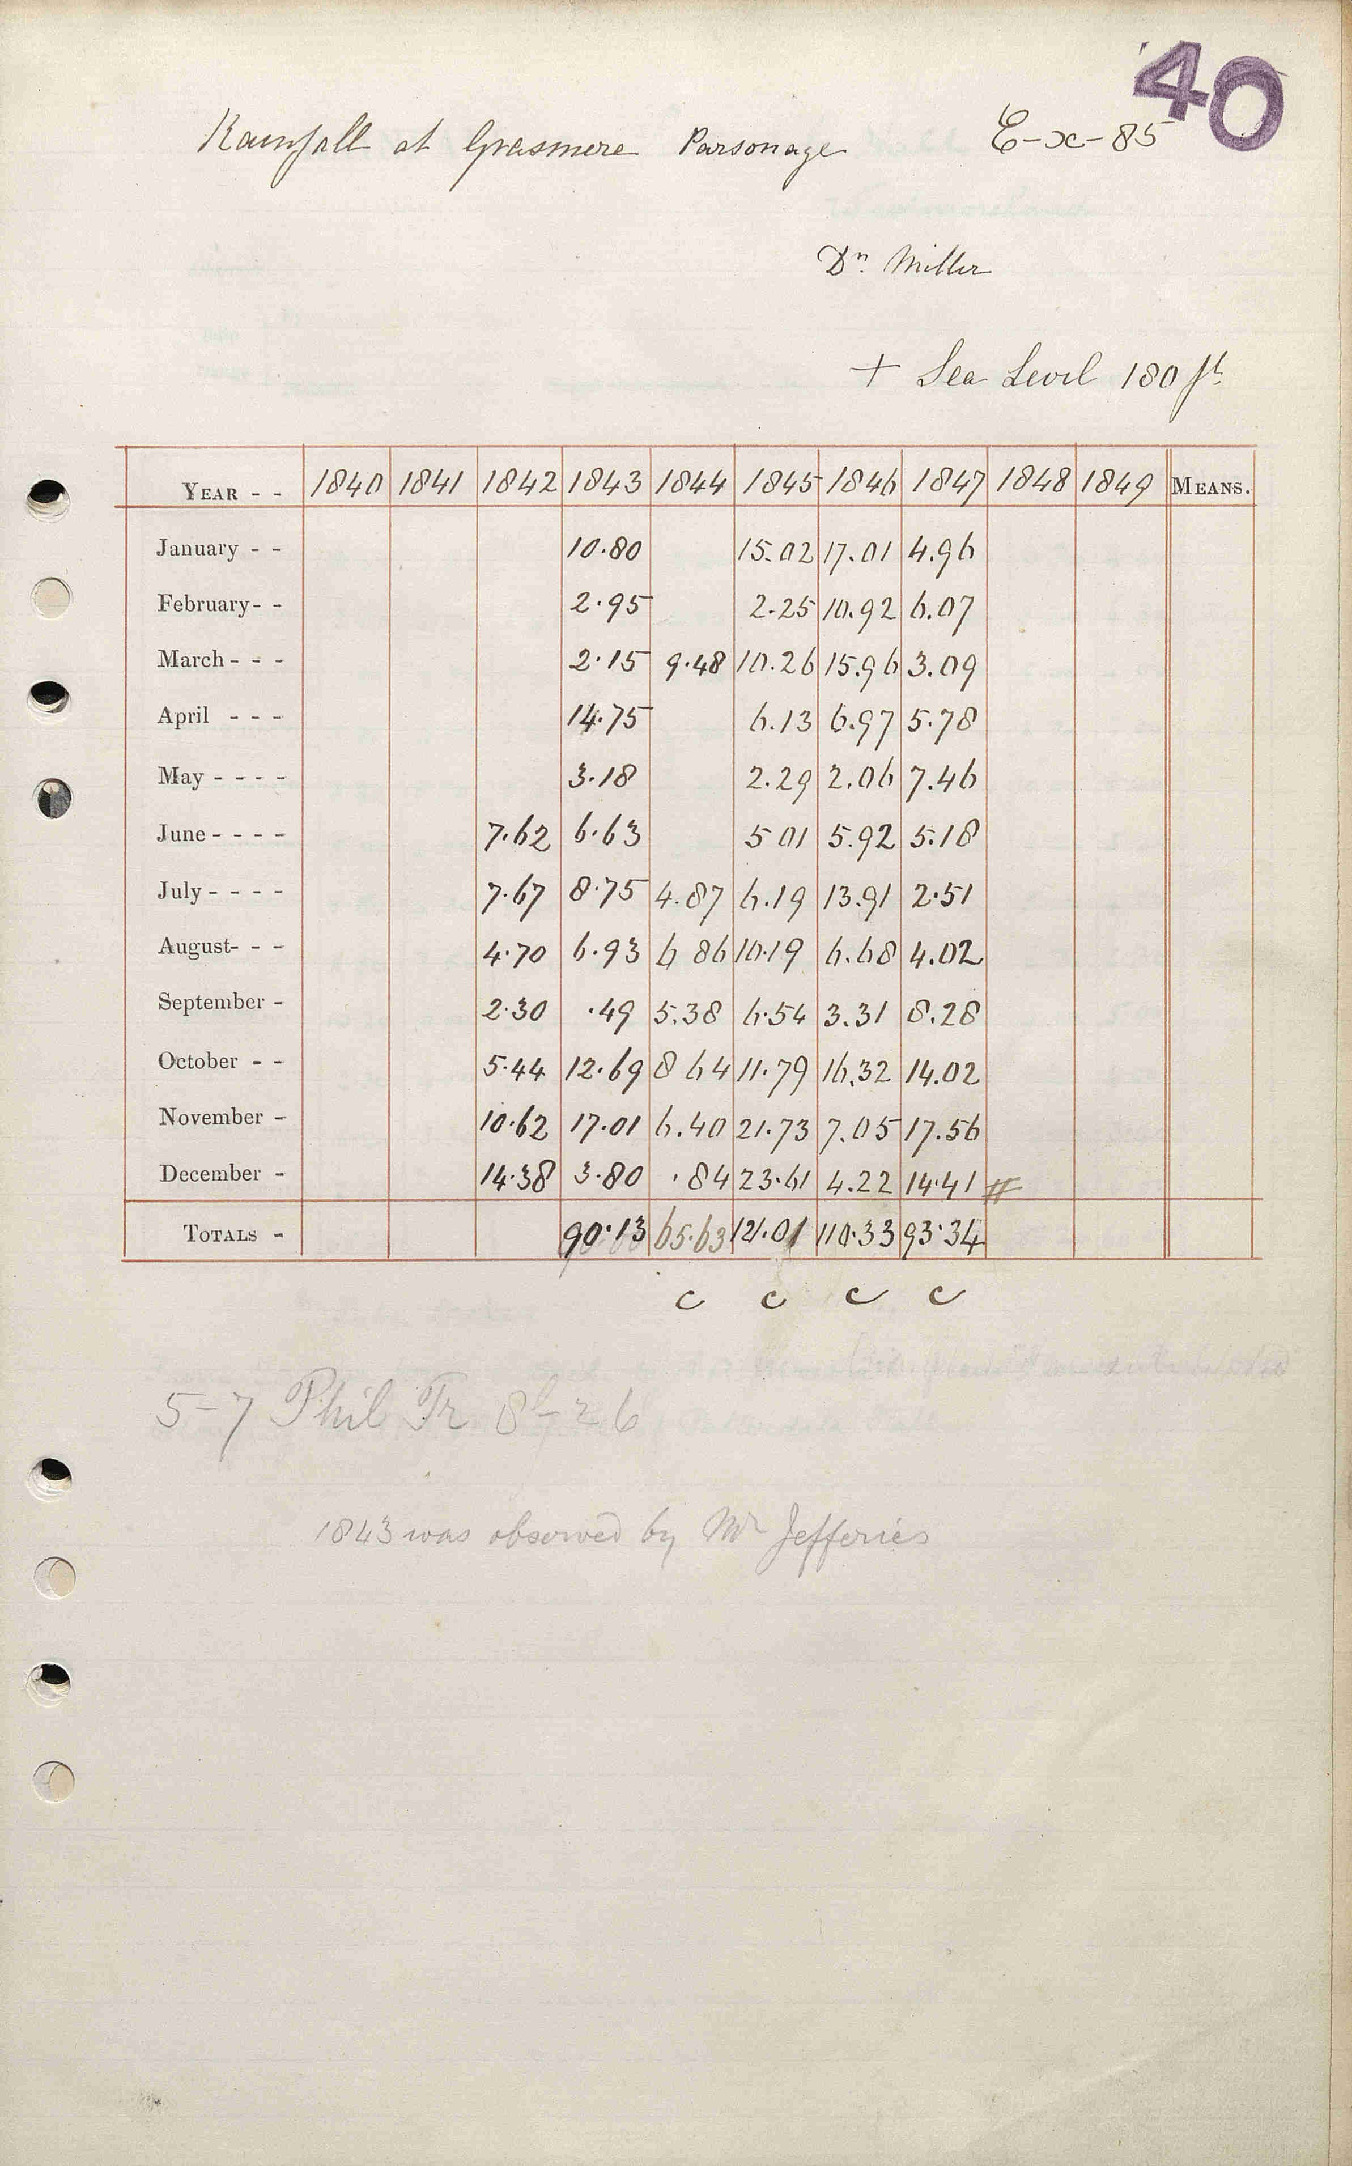 '40
Rainfall at Grasmere Parsonage E-x-85
Dr. Miller
+ Sea Level 180 ft
YEAR - - 1840 1841 1842 1843 1844 1845 1846 1847 1848 1849 MEANS.
January - - 10.80 15.02 17.01 4.96
February - - 2.95 2.25 10.92 6.07
March - - - 2.15 9.48 10.26 15.96 3.09
April - - - 14.75 6.13 6.97 5.78
May - - - - 3.18 2.29 2.06 7.46
June - - - - 7.62 6.63 5 01 5.92 5.18
July - - - - 7.67 8.75 4.87 6.19 13.91 2.51
August - - - 4.70 6.93 6 86 10.19 6.68 4.02
September - 2.30 .49 5.38 6.54 3.31 8.28
October - - 5.44 12.69 8 64 11.79 16.32 14.02
November - 10.62 17.01 6.40 21.73 7.05 17.56
December - 14.38 3.80 .84 23.61 4.22 14.41 #
TOTALS - 90.13 65.63 121.01 110.33 93.34
c c c c
5-7 Phil Tr 8 - 26
1843 was observed by Mr Jefferies